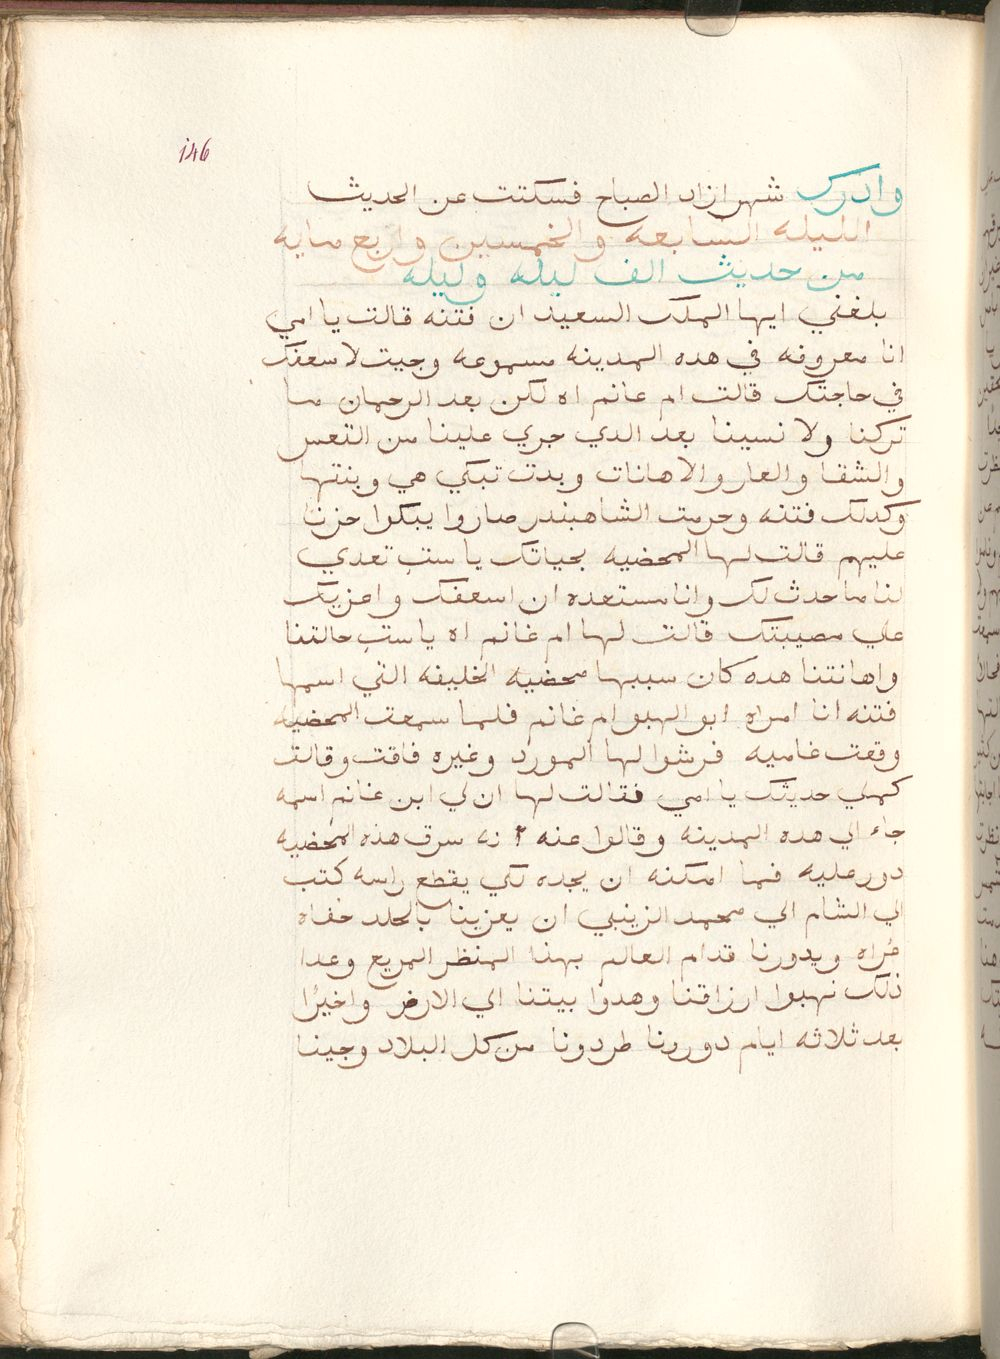 146
وادرك شهرازاد الصباح فسكتت عن الحديث
الليله السابعه والخمسين واربع مايه
من حديث الف ليله وليله
بلغني ايها الملك السعيد ان فتنه قالت يا امي
انا معروفه في هده المدينه مسموعه وجيت لاسعفك
في حاجتك قالت ام غانم اه لكن بعد الرحمان ما
تركنا ولا نسينا بعد الدي جري علينا من التعس
والشقا والعار والاهانات وبدت تبكي هي وبنتها
وكدلك فتنه وحرمت الشاهبندر صاروا يبكوا حزنا
عليهم قالت لها المحضيه بحياتك يا ست تعدي
لنا ما حدث لك وانا مستعده ان اسعفك واعزيك
علي مصيبتك قالت لها ام غانم اه يا ست حالتنا
واهانتنا هده كان سببها محضيه الخليفه التي اسمها
فتنه انا امراه ابو الهبو ام غانم فلما سمعت المحضيه
وقعت غاميه فرشوا لها المورد وغيره فاقت وقالت
كملي حديثك يا امي فقالت لها ان لي ابن غانم اسمه
جاء الي هده المدينه وقالوا عنه انه سرق هذه المحضيه
دور عليه فما امكنه ان يجده لكي يقطع راسه كتب
الي الشام الي محمد الزينبي ان يعزينا بالجلد حفاه
عُراه ويدورنا قدام العالم بهذا المنظر المريع وعدا
ذلك نهبوا ارزاقنا وهدوا بيتنا الي الارض واخيرًا
بعد ثلاثه ايام دوررنا طردونا من كل البلاد وجينا